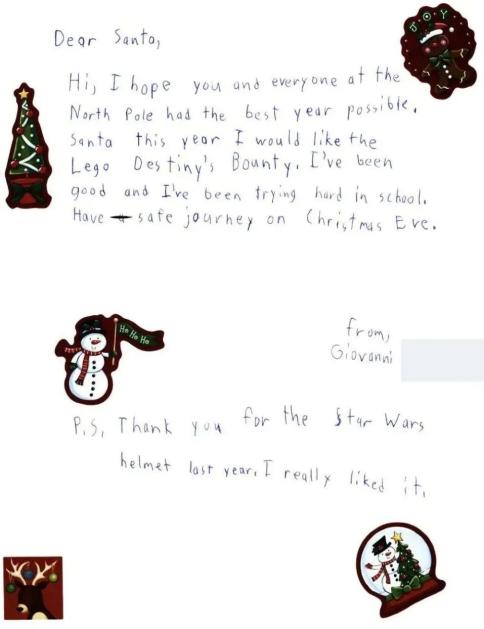 JOY
Dear Santa,
Hi, I hope you and everyone at the
North Pole had the best year possible.
Santa this year I would like the
Lego Destiny's Bounty. I've been
good and I've been trying hard in school.
Have a safe journey on Christmas Eve.
Ho Ho Ho
from,
Giovanni
P.S. Thank you for the Star Wars
helmet last year. I really liked it.